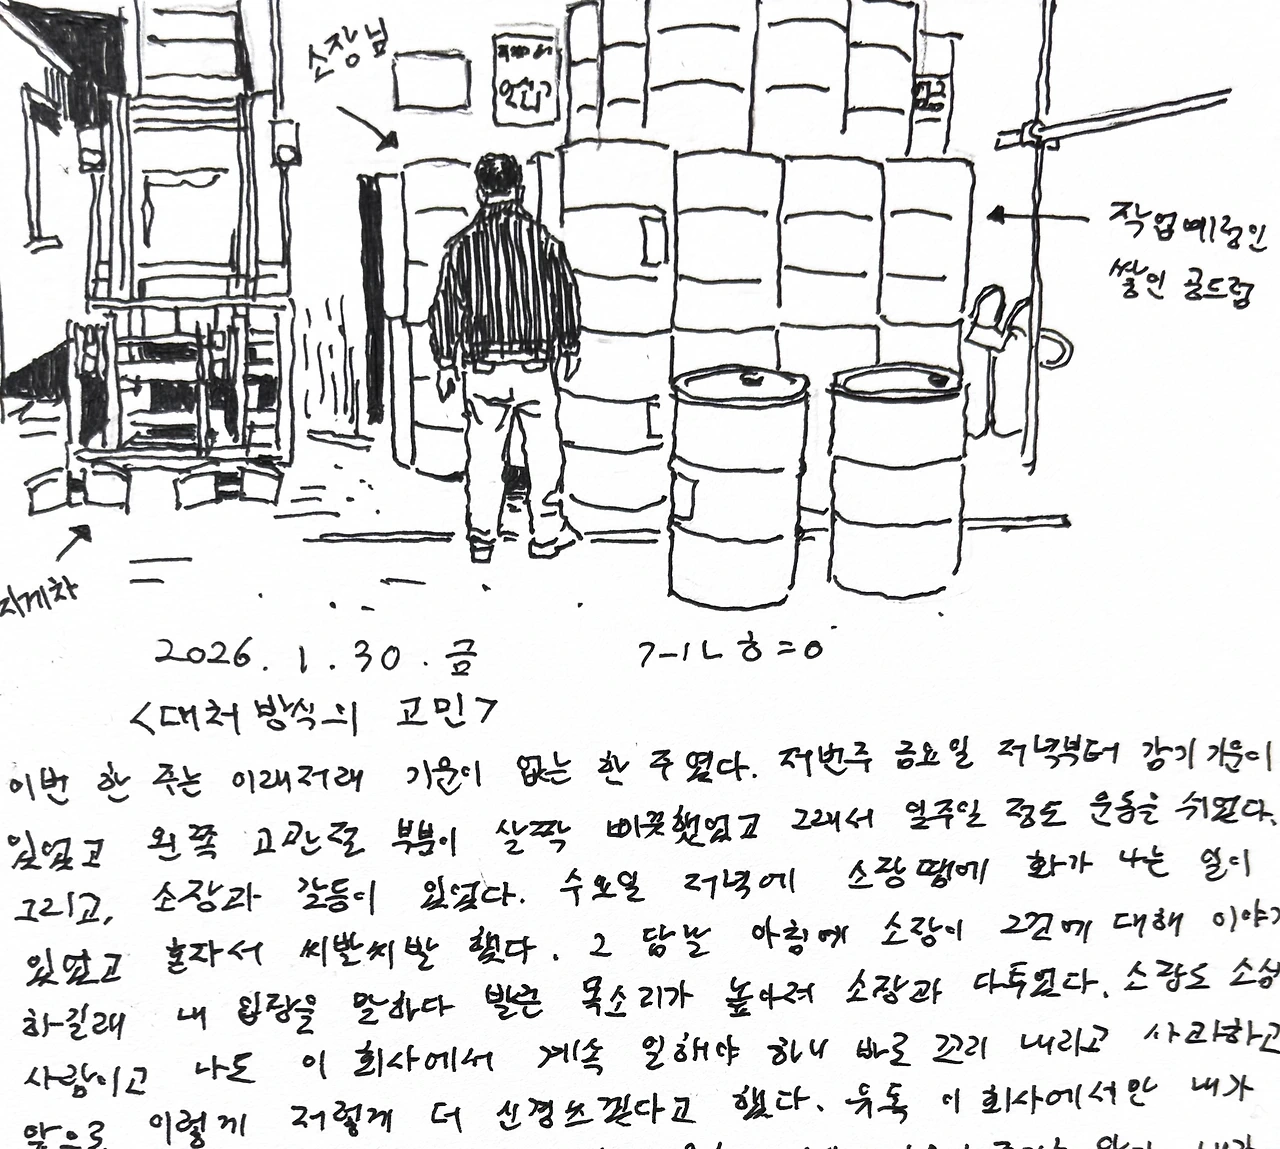 소장님
작업예정인
쌓인 공드럼
지게차
2026. 1. 30. 금
<대처 방식의 고민>
이번 한 주는 이래저래 기운이 없는 한 주였다. 저번주 금요일 저녁부터 감기 기운이
있었고 왼쪽 고관절 부분이 살짝 삐끗했었고 그래서 일주일 정도 운동을 쉬었다.
그리고, 소장과 갈등이 있었다. 수요일 저녁에 소장 땜에 화가 나는 일이
있었고 혼자서 씨발씨발 했다. 그 담날 아침에 소장이 그건에 대해 이야기
하길래 내 입장을 말하다 발끈 목소리가 높아져 소장과 다투었다. 소장도 소심
사람이고 나도 이 회사에서 계속 일해야 하니 바로 꼬리 내리고 사과하고
앞으로 이렇게 저렇게 더 신경쓰겠다고 했다. 유독 이 회사에서만 내가